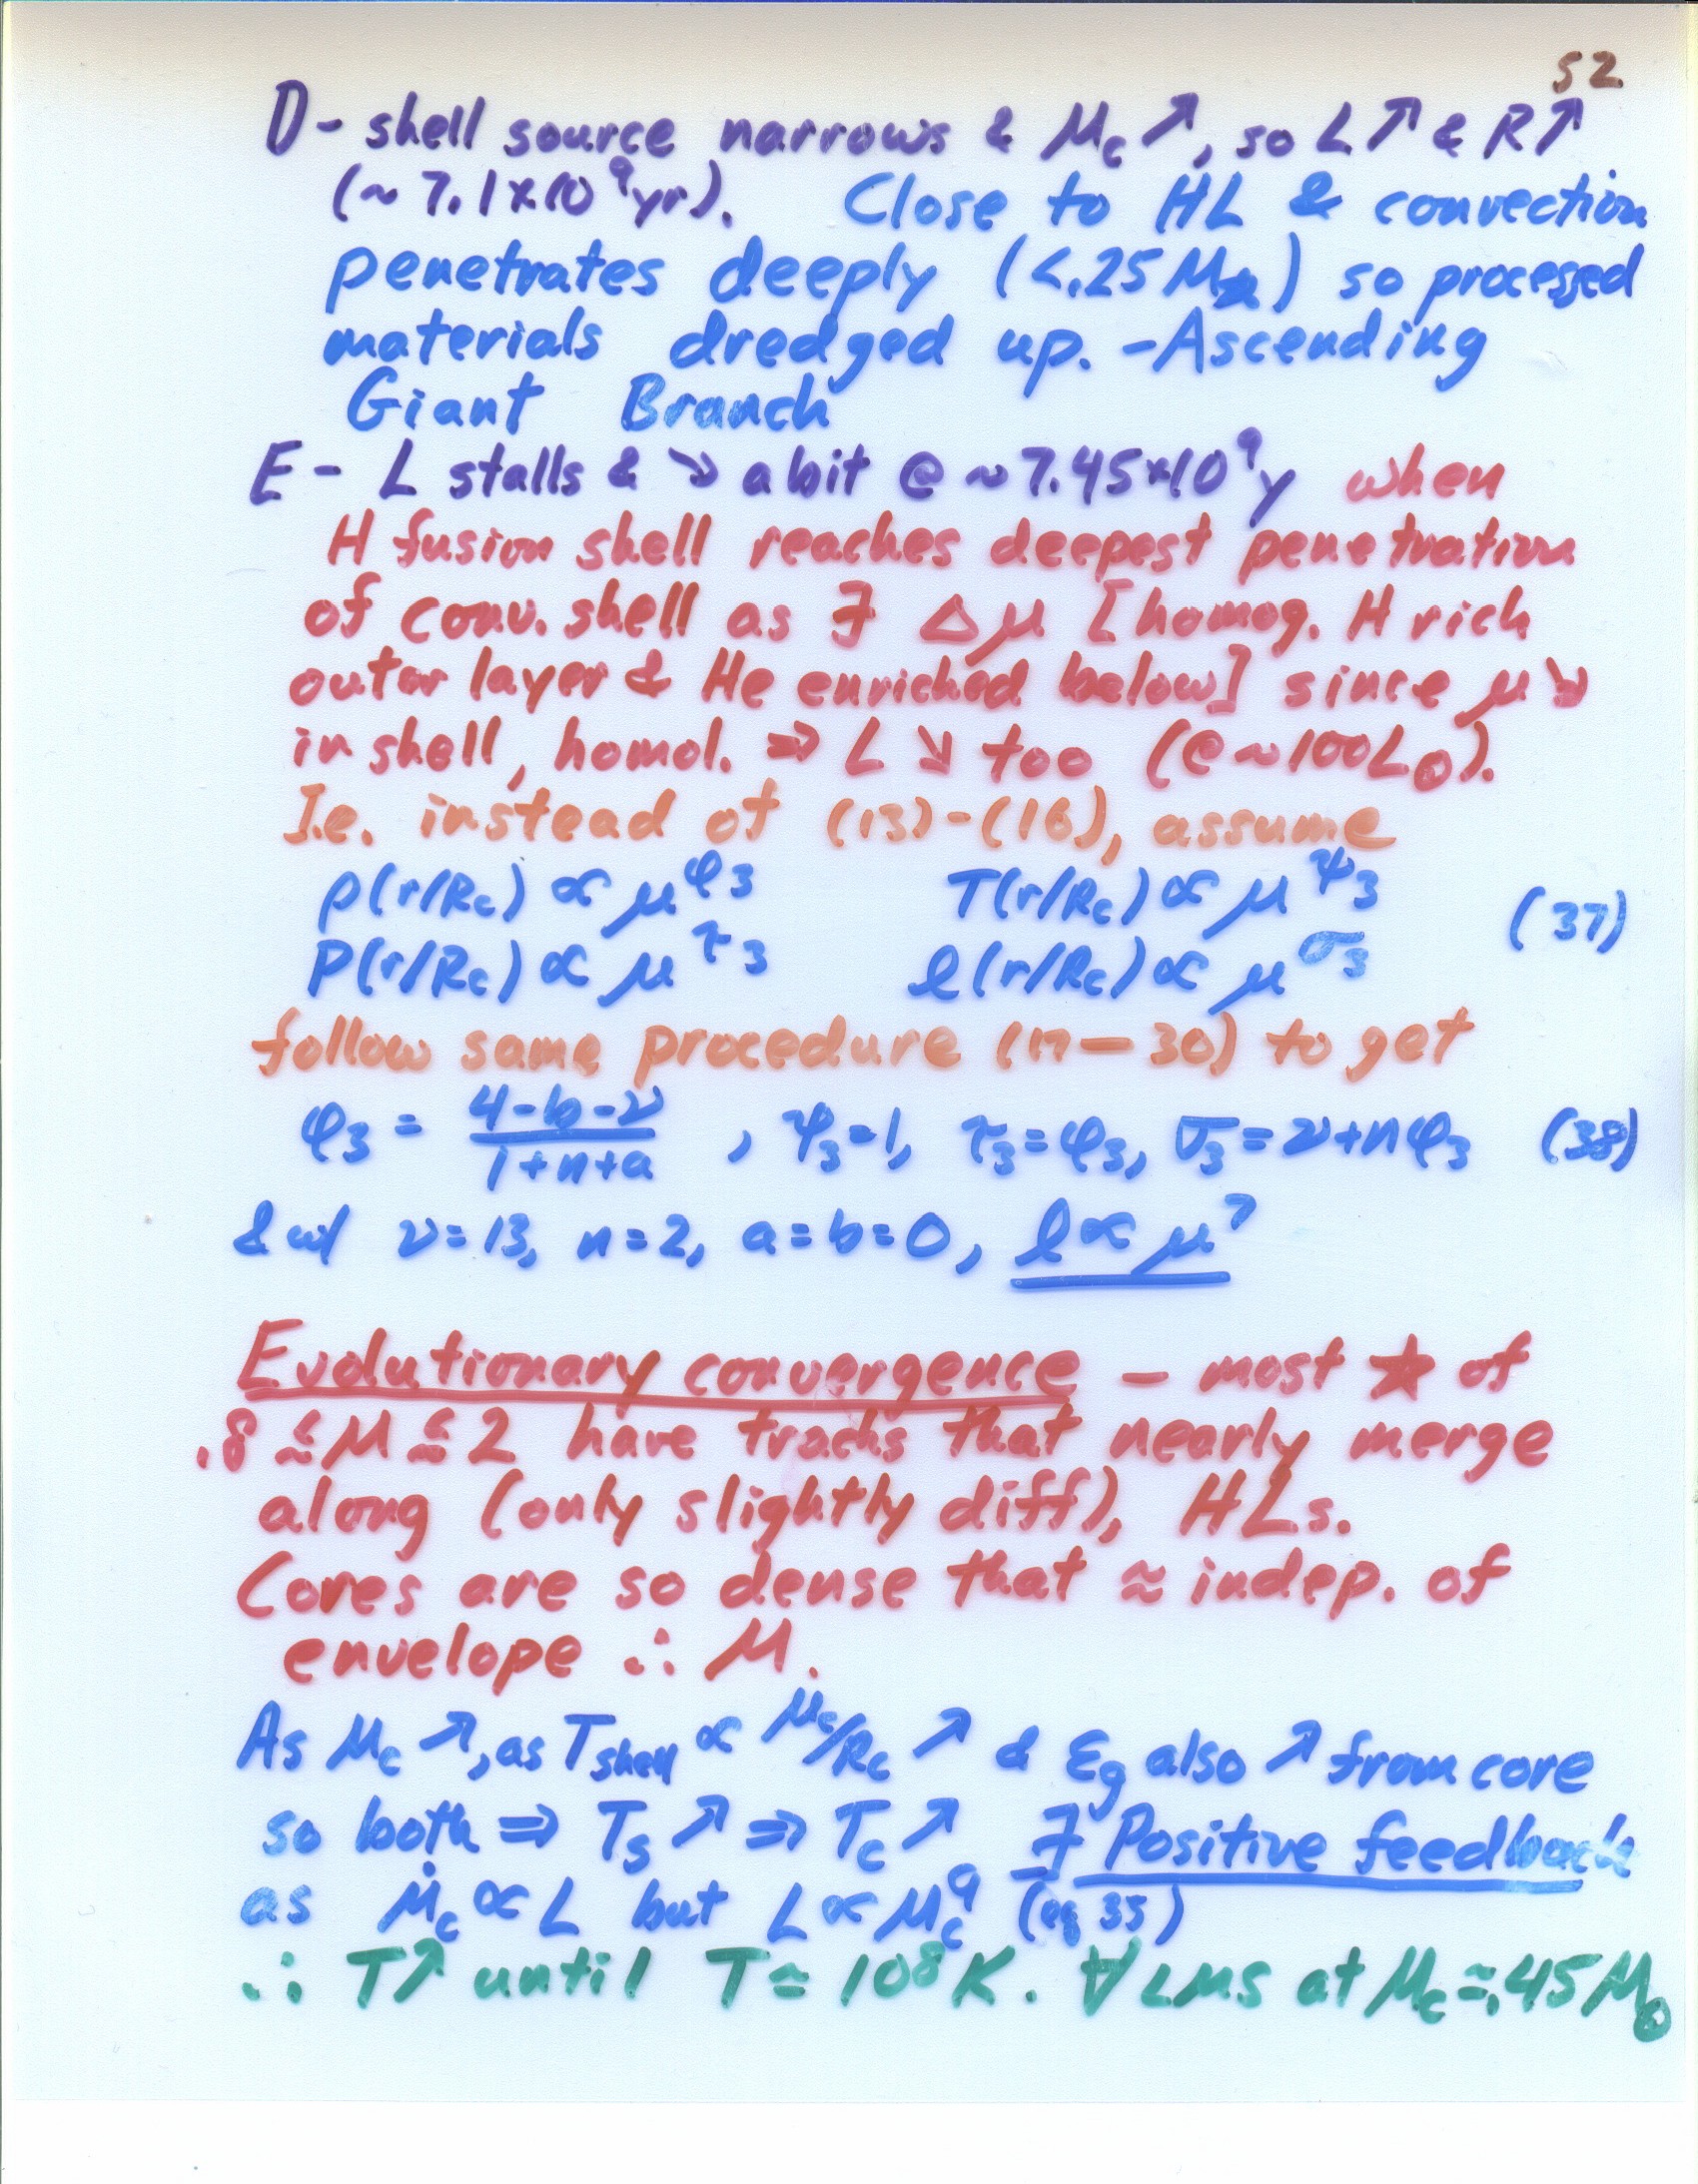 52
D- shell source narrows & Mc ↗, so L↗ & R↗
(~7.1×10⁹yr). Close to HL & convection
penetrates deeply (<.25M★) so processed
materials dredged up. -Ascending
Giant Branch
E- L stalls & ↘ a bit @ ~7.45×10⁹y when
H fusion shell reaches deepest penetration
of conv. shell as ∃ Δμ [homog. H rich
outer layer & He enriched below] since μ↘
in shell, homol. ⇒ L ↘ too (@~100L⊙).
I.e. instead of (13)-(16), assume
ρ(r/Rc) ∝ μ^φ₃ T(r/Rc) ∝ μ^ψ₃ (37)
P(r/Rc) ∝ μ^τ₃ ℓ(r/Rc) ∝ μ^σ₃
follow same procedure (17—30) to get
φ₃ = (4-b-ν)/(1+n+a), ψ₃=1, τ₃=φ₃, σ₃=ν+nφ₃ (38)
& w/ ν=13, n=2, a=b=0, ℓ∝μ⁷
Evolutionary convergence - most ★ of
.8 ≲ M ≲ 2 have tracks that nearly merge
along (only slightly diff), HLs.
Cores are so dense that ≈ indep. of
envelope ∴ M.
As Mc ↗, as Tshell ∝ Mc/Rc ↗ & εg also ↗ from core
so both ⇒ Ts ↗ ⇒ Tc ↗ ∃ Positive feedback
as Ṁc ∝ L but L ∝ Mc⁹ (eq 35)
∴ T↗ until T≃10⁸K. ∀ LMS at Mc≃.45M⊙